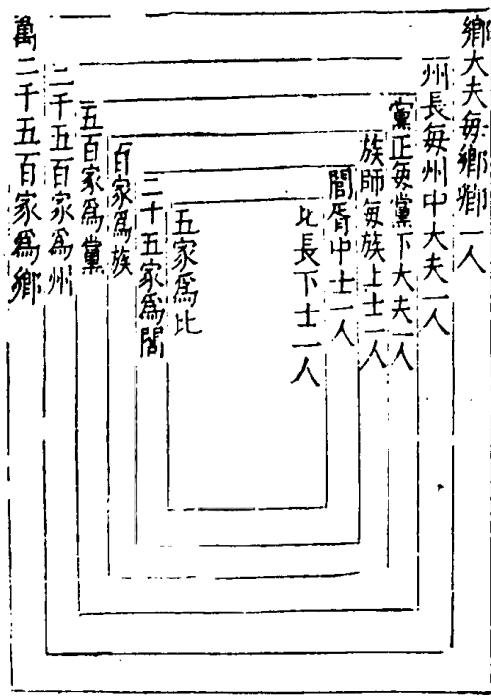 鄉大夫每鄉卿一人
州長每州中大夫一人
黨正每黨下大夫一人
族師每族上士一人
閭胥中士一人
比長下士一人
五家爲比
二十五家爲閭
百家爲族
五百家爲黨
二千五百家爲州
萬二千五百家爲鄉